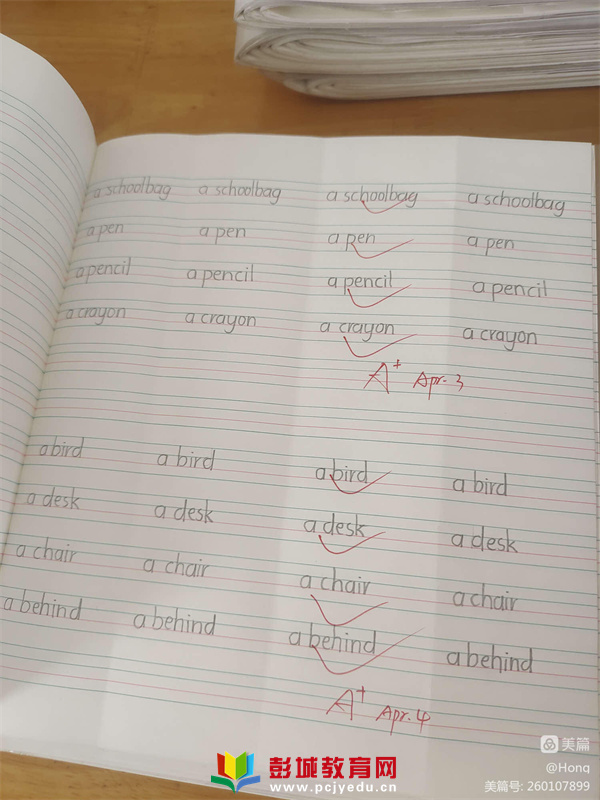 a schoolbag a schoolbag a schoolbag a schoolbag
a pen a pen a pen a pen
a pencil a pencil a pencil a pencil
a crayon a crayon a crayon a crayon
A+ Apr. 3
a bird a bird a bird a bird
a desk a desk a desk a desk
a chair a chair a chair a chair
a behind a behind a behind a behind
A+ Apr. 4
美篇
@Hong
美篇号: 260107899
彭城教育网
www.pcjyedu.cn